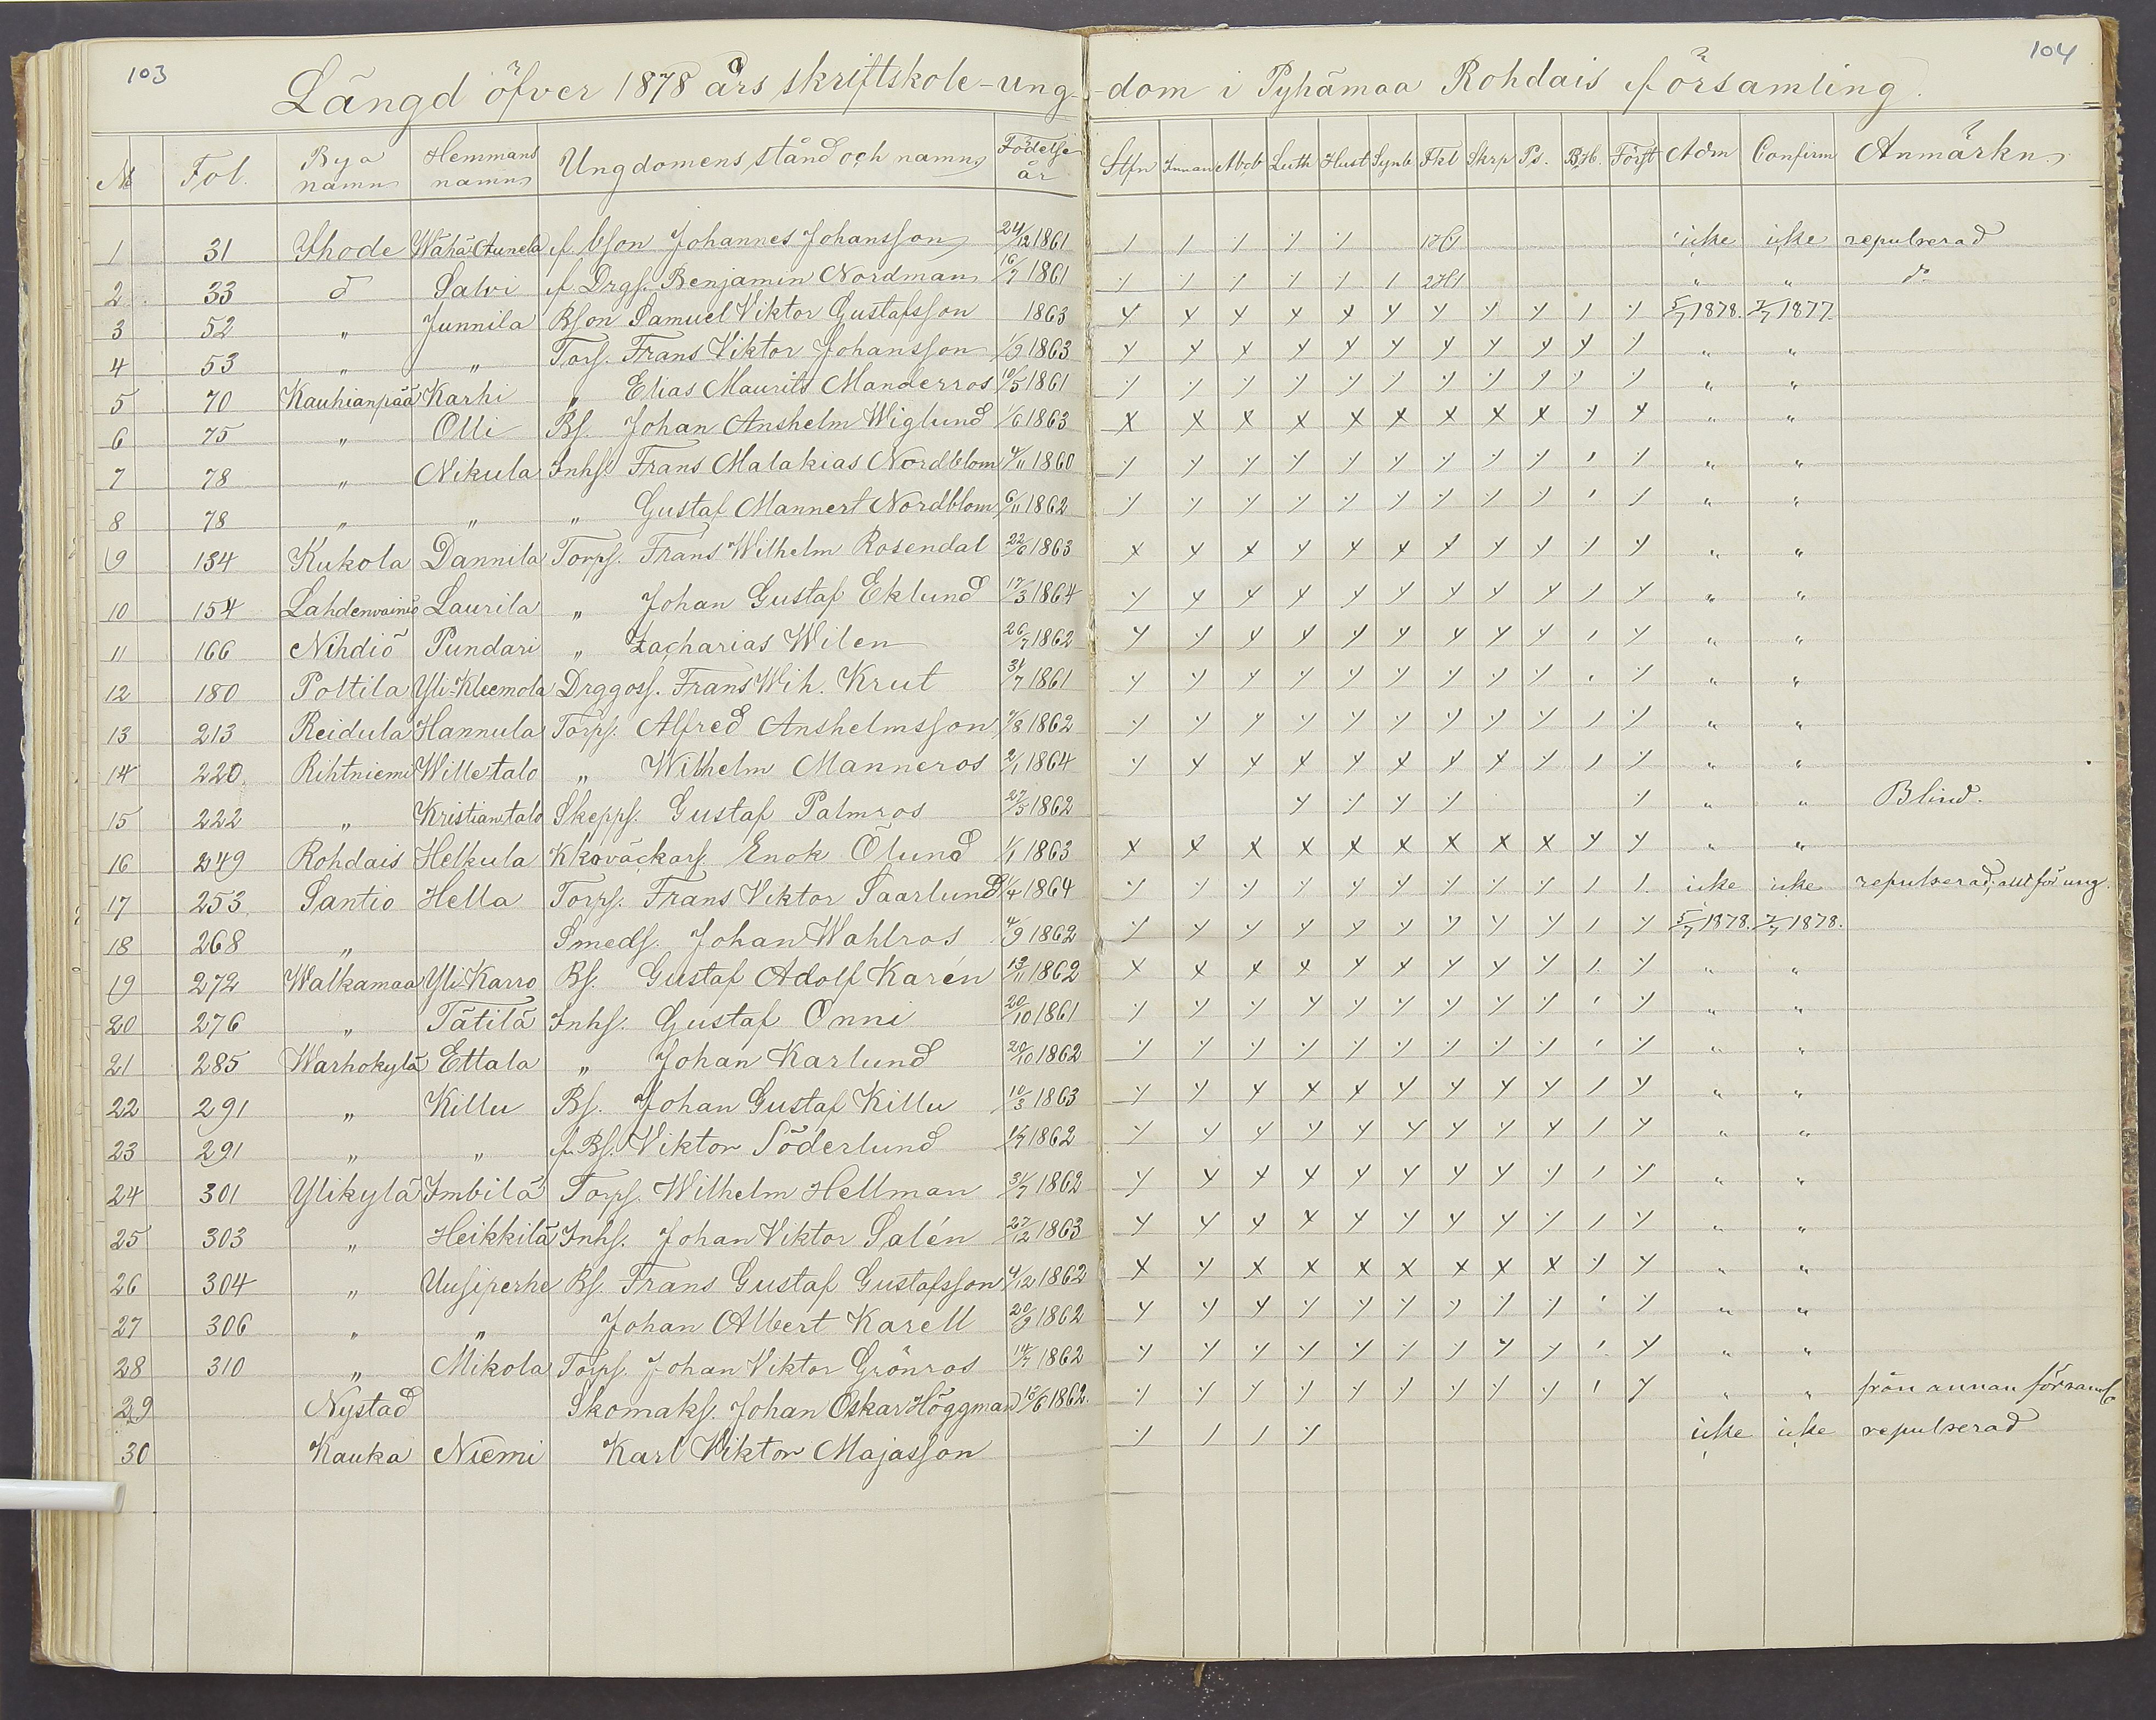 103
104
Längd öfver 1878 års skriftskole-ung-dom i Pyhämaa Rohdais församling.
No Fol. Bya namn Hemmans namn Ungdomens stånd och namn Födelse år Innan Abcb Luth Hust Synb Fkl Skrp Ps. B.H. Först Adm Confirm Anmärkn.
1 31 Ihode Wähä f. bson Johannes Johansson 24/12 1861 icke icke repulserad
2 33 d Salvi f. Drgs. Benjamin Nordman 16/7 1861 " " do
3 52 " Junnila Bson Samuel Viktor Gustafsson 1863 5/7 1878. 7/7 1877
4 53 " " Tors. Frans Viktor Johansson 1/9 1863 " "
5 70 Kauhianpää Karhi " Elias Maurits Manderros 10/5 1861 " "
6 75 " Olli Bs. Johan Anshelm Wiglund 1/6 1863 " "
7 78 " Nikula Inhs. Frans Malakias Nordblom 4/11 1860 " "
8 78 " " " Gustaf Mannert Nordblom 6/11 1862 " "
9 134 Kukola Dannila Torps. Frans Wilhelm Rosendal 22/6 1863 " "
10 154 Lahdenvainio Laurila " Johan Gustaf Eklund 17/3 1864 " "
11 166 Nihdiö Pundari " Zacharias Wilen 26/7 1862 " "
12 180 Poltila Yli-Kleemola Drggoss. Frans Wih. Krut 31/7 1861 " "
13 213 Reidula Hannula Torps. Alfred Anshelmsson 7/8 1862 " "
14 220. Rihtniemi Willetalo " Wilhelm Manneros 2/1 1864 " "
15 222 " Kristiantalo Skepps. Gustaf Palmros 27/5 1862 " " Blind.
16 249 Rohdais Helkula Kkoväckars. Enok Ölund 1/1 1863 " "
17 253. Santio Hella Torps. Frans Viktor Saarlund 1/4 1864 icke icke repulserad, allt för ung.
18 268 " Smeds. Johan Wahlros 4/9 1862 5/7 1878. 7/7 1878.
19 272 Walkamaa Yli-Karro Bs. Gustaf Adolf Karén 13/11 1862 " "
20 276 " Tätilä Inhs. Gustaf Onni 20/10 1861 " "
21 285 Warhokylä Ettala " Johan Karlund 20/10 1862 " "
22 291 " Killu Bs. Johan Gustaf Killu 10/3 1863 " "
23 291 " " f. Bs. Viktor Söderlund 1862 " "
24 301 Ylikylä Imbilä Torps. Wilhelm Hellman 31/7 1862 " "
25 303 " Heikkilä Inhs. Johan Viktor Salén 27/12 1863 " "
26 304 " Uusiperhe Bs. Frans Gustaf Gustafsson 4/12 1862 " "
27 306 " " Johan Albert Karell 20/9 1862 " "
28 310 " Mikola Torps. Johan Viktor Grönros 14/7 1862 " "
29 Nystad Skomaks. Johan Oskar Höggman 15/6 1862. " " från annan församl.
30 Kauka Niemi Karl Viktor Majasson icke icke repulserad